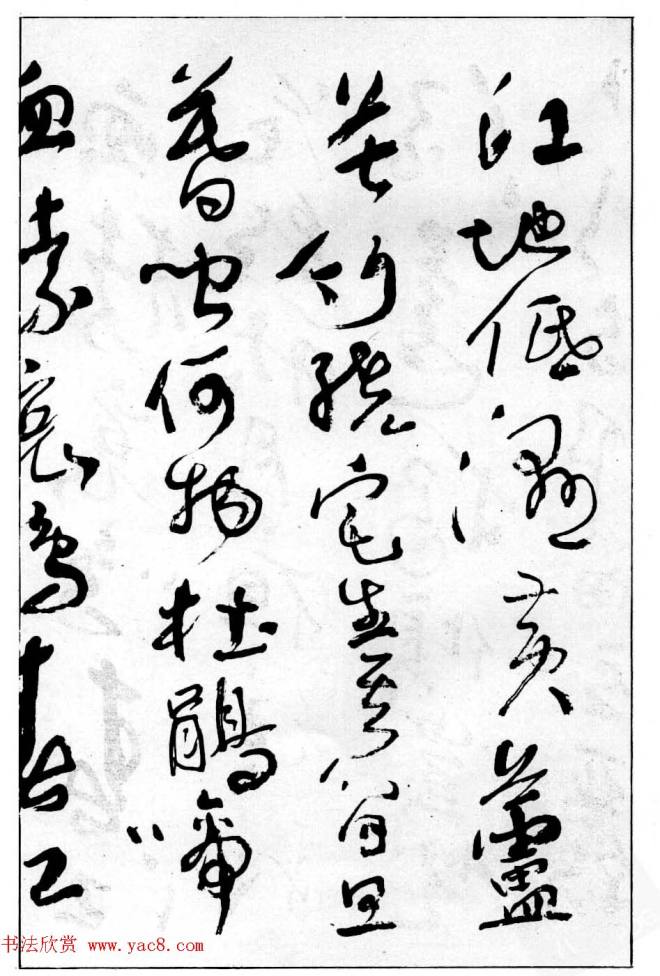 江地低濕黃蘆
苦竹繞宅生其間旦
暮聞何物杜鵑啼
血猿哀鳴春江
书法欣赏 www.yac8.com